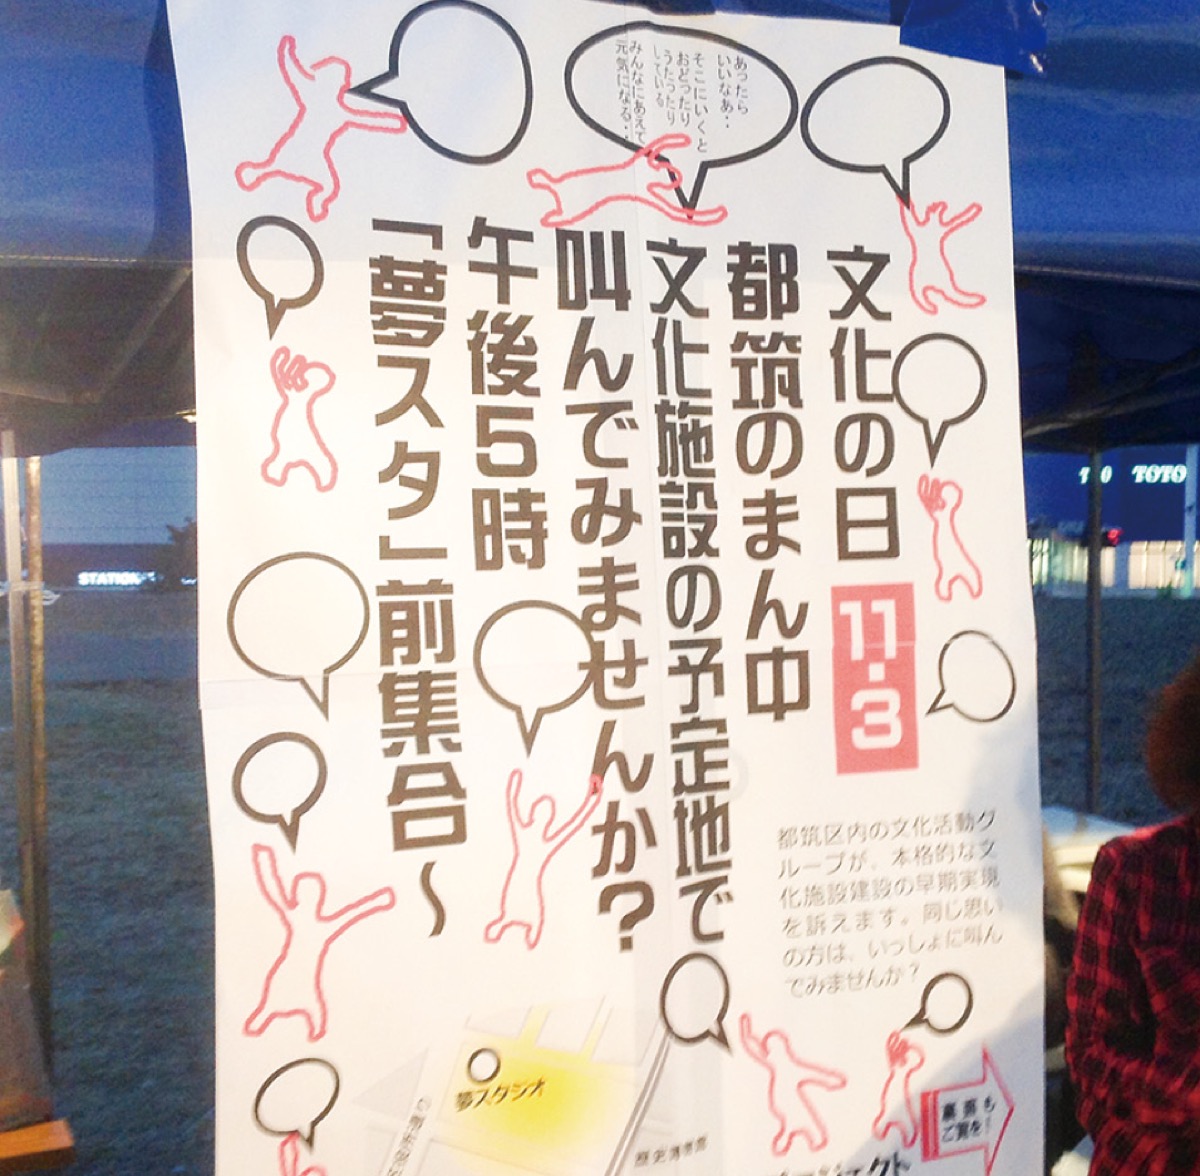 あったら
いいなあ・・
そこにいくと
おどったり
うたったり
している
みんなにあえて
元気になる・・
文化の日
11・3
都筑のまん中
文化施設の予定地で
叫んでみませんか?
午後5時
「夢スタ」前集合〜
都筑区内の文化活動グ
ループが、本格的な文
化施設建設の早期実現
を訴えます。同じ思い
の方は、いっしょに叫ん
でみませんか?
夢スタジオ
歴史博物館
裏面も
ご覧を!
TOTO
STATION